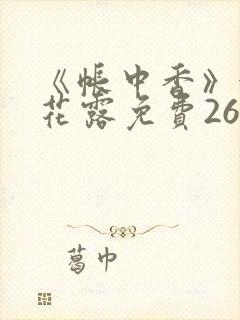 《帐中香》
花露免費26
葛巾